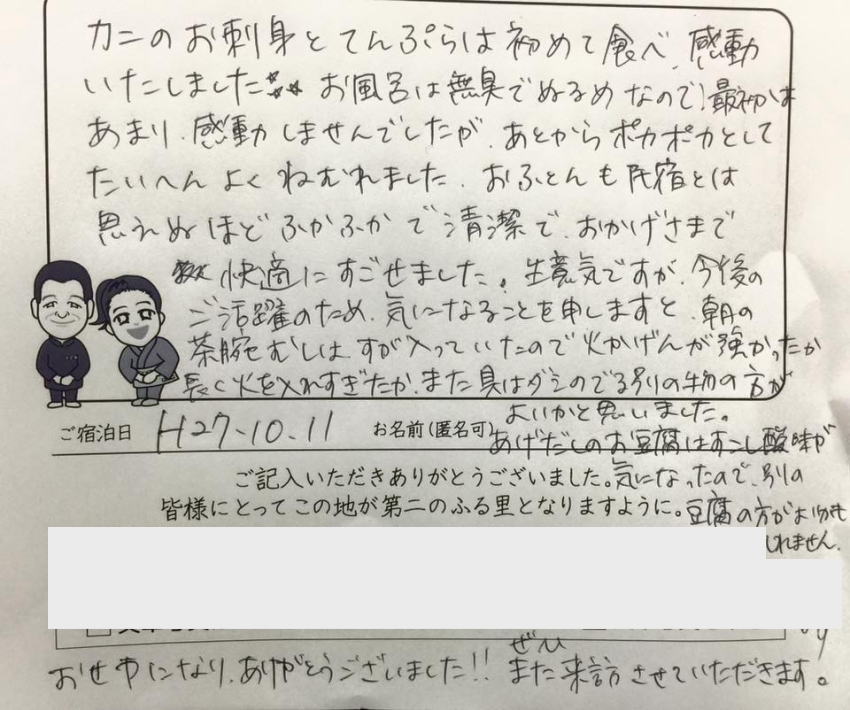 カニのお刺身とてんぷらは初めて食べ、感動
いたしました。お風呂は無臭でぬるめなので、最初は
あまり、感動しませんでしたが、あとからポカポカとして
たいへんよくねむれました。おふとんも民宿とは
思えぬほどふかふかで清潔で、おかげさまで
快適にすごせました。生意気ですが、今後の
ご活躍のため、気になることを申しますと、朝の
茶腕むしは、すが入っていたので火かげんが強かったか
長く火を入れすぎたか、また具はダシのでる別の物の方が
よいかと思いました。
ご宿泊日 H27.10.11 お名前(匿名可)
あげだしのお豆腐はすこし酸味が
ご記入いただきありがとうございました。気になったので、別の
皆様にとってこの地が第二のふる里となりますように。豆腐の方がよいかも
しれません。
おせわになり、ありがとうございました!! ぜひまた来訪させていただきます。